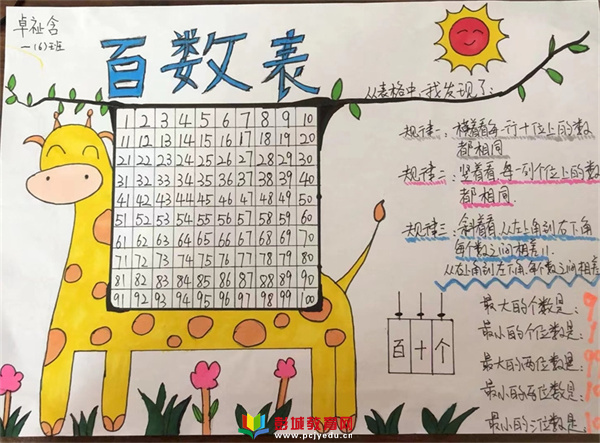 卓祉含
一(6)班
百数表
从表格中,我发现了:
1 2 3 4 5 6 7 8 9 10
11 12 13 14 15 16 17 18 19 20
21 22 23 24 25 26 27 28 29 30
31 32 33 34 35 36 37 38 39 40
41 42 43 44 45 46 47 48 49 50
51 52 53 54 55 56 57 58 59 60
61 62 63 64 65 66 67 68 69 70
71 72 73 74 75 76 77 78 79 80
81 82 83 84 85 86 87 88 89 90
91 92 93 94 95 96 97 98 99 100
规律一:横着看每一行十位上的数
都相同
规律二:竖着看每一列个位上的数
都相同
规律三:斜着看从左上角到右下角
每个数之间相差11
从右上角到左下角,每个数之间相差
百 十 个
最大的个数是:9
最小的个位数是:1
最大的两位数是:99
最小的两位数是:10
最小的三位数是:10
彭城教育网
www.pcjyedu.cn